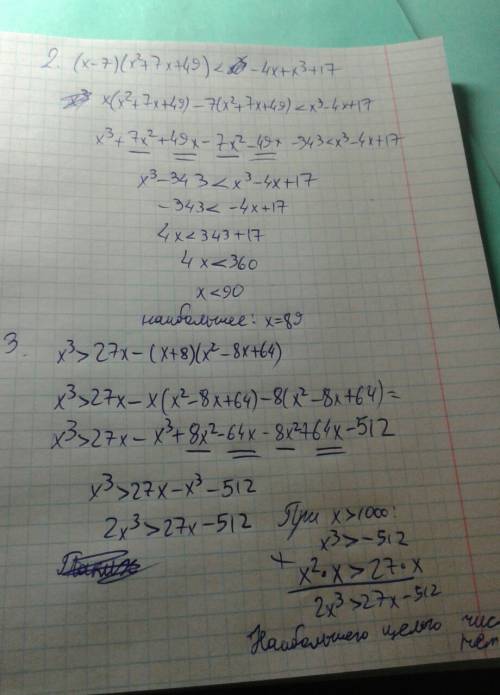 2. (x-7)(x²+7x+49)< -4x+x³+17
x(x²+7x+49)-7(x²+7x+49)<x³-4x+17
x³+7x²+49x-7x²-49x-343<x³-4x+17
x³-343<x³-4x+17
-343<-4x+17
4x<343+17
4x<360
x<90
наибольшее: x=89
3. x³>27x-(x+8)(x²-8x+64)
x³>27x-x(x²-8x+64)-8(x²-8x+64)=
x³>27x-x³+8x²-64x-8x²+64x-512
x³>27x-x³-512
2x³>27x-512
При x>1000:
x³>-512
+ x²·x>27·x
2x³>27x-512
Наибольшего целого чис
нет